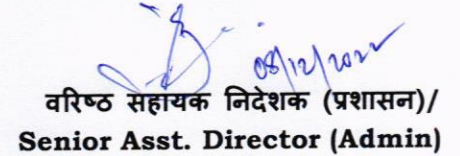 08/12/2022
वरिष्ठ सहायक निदेशक (प्रशासन)/
Senior Asst. Director (Admin)